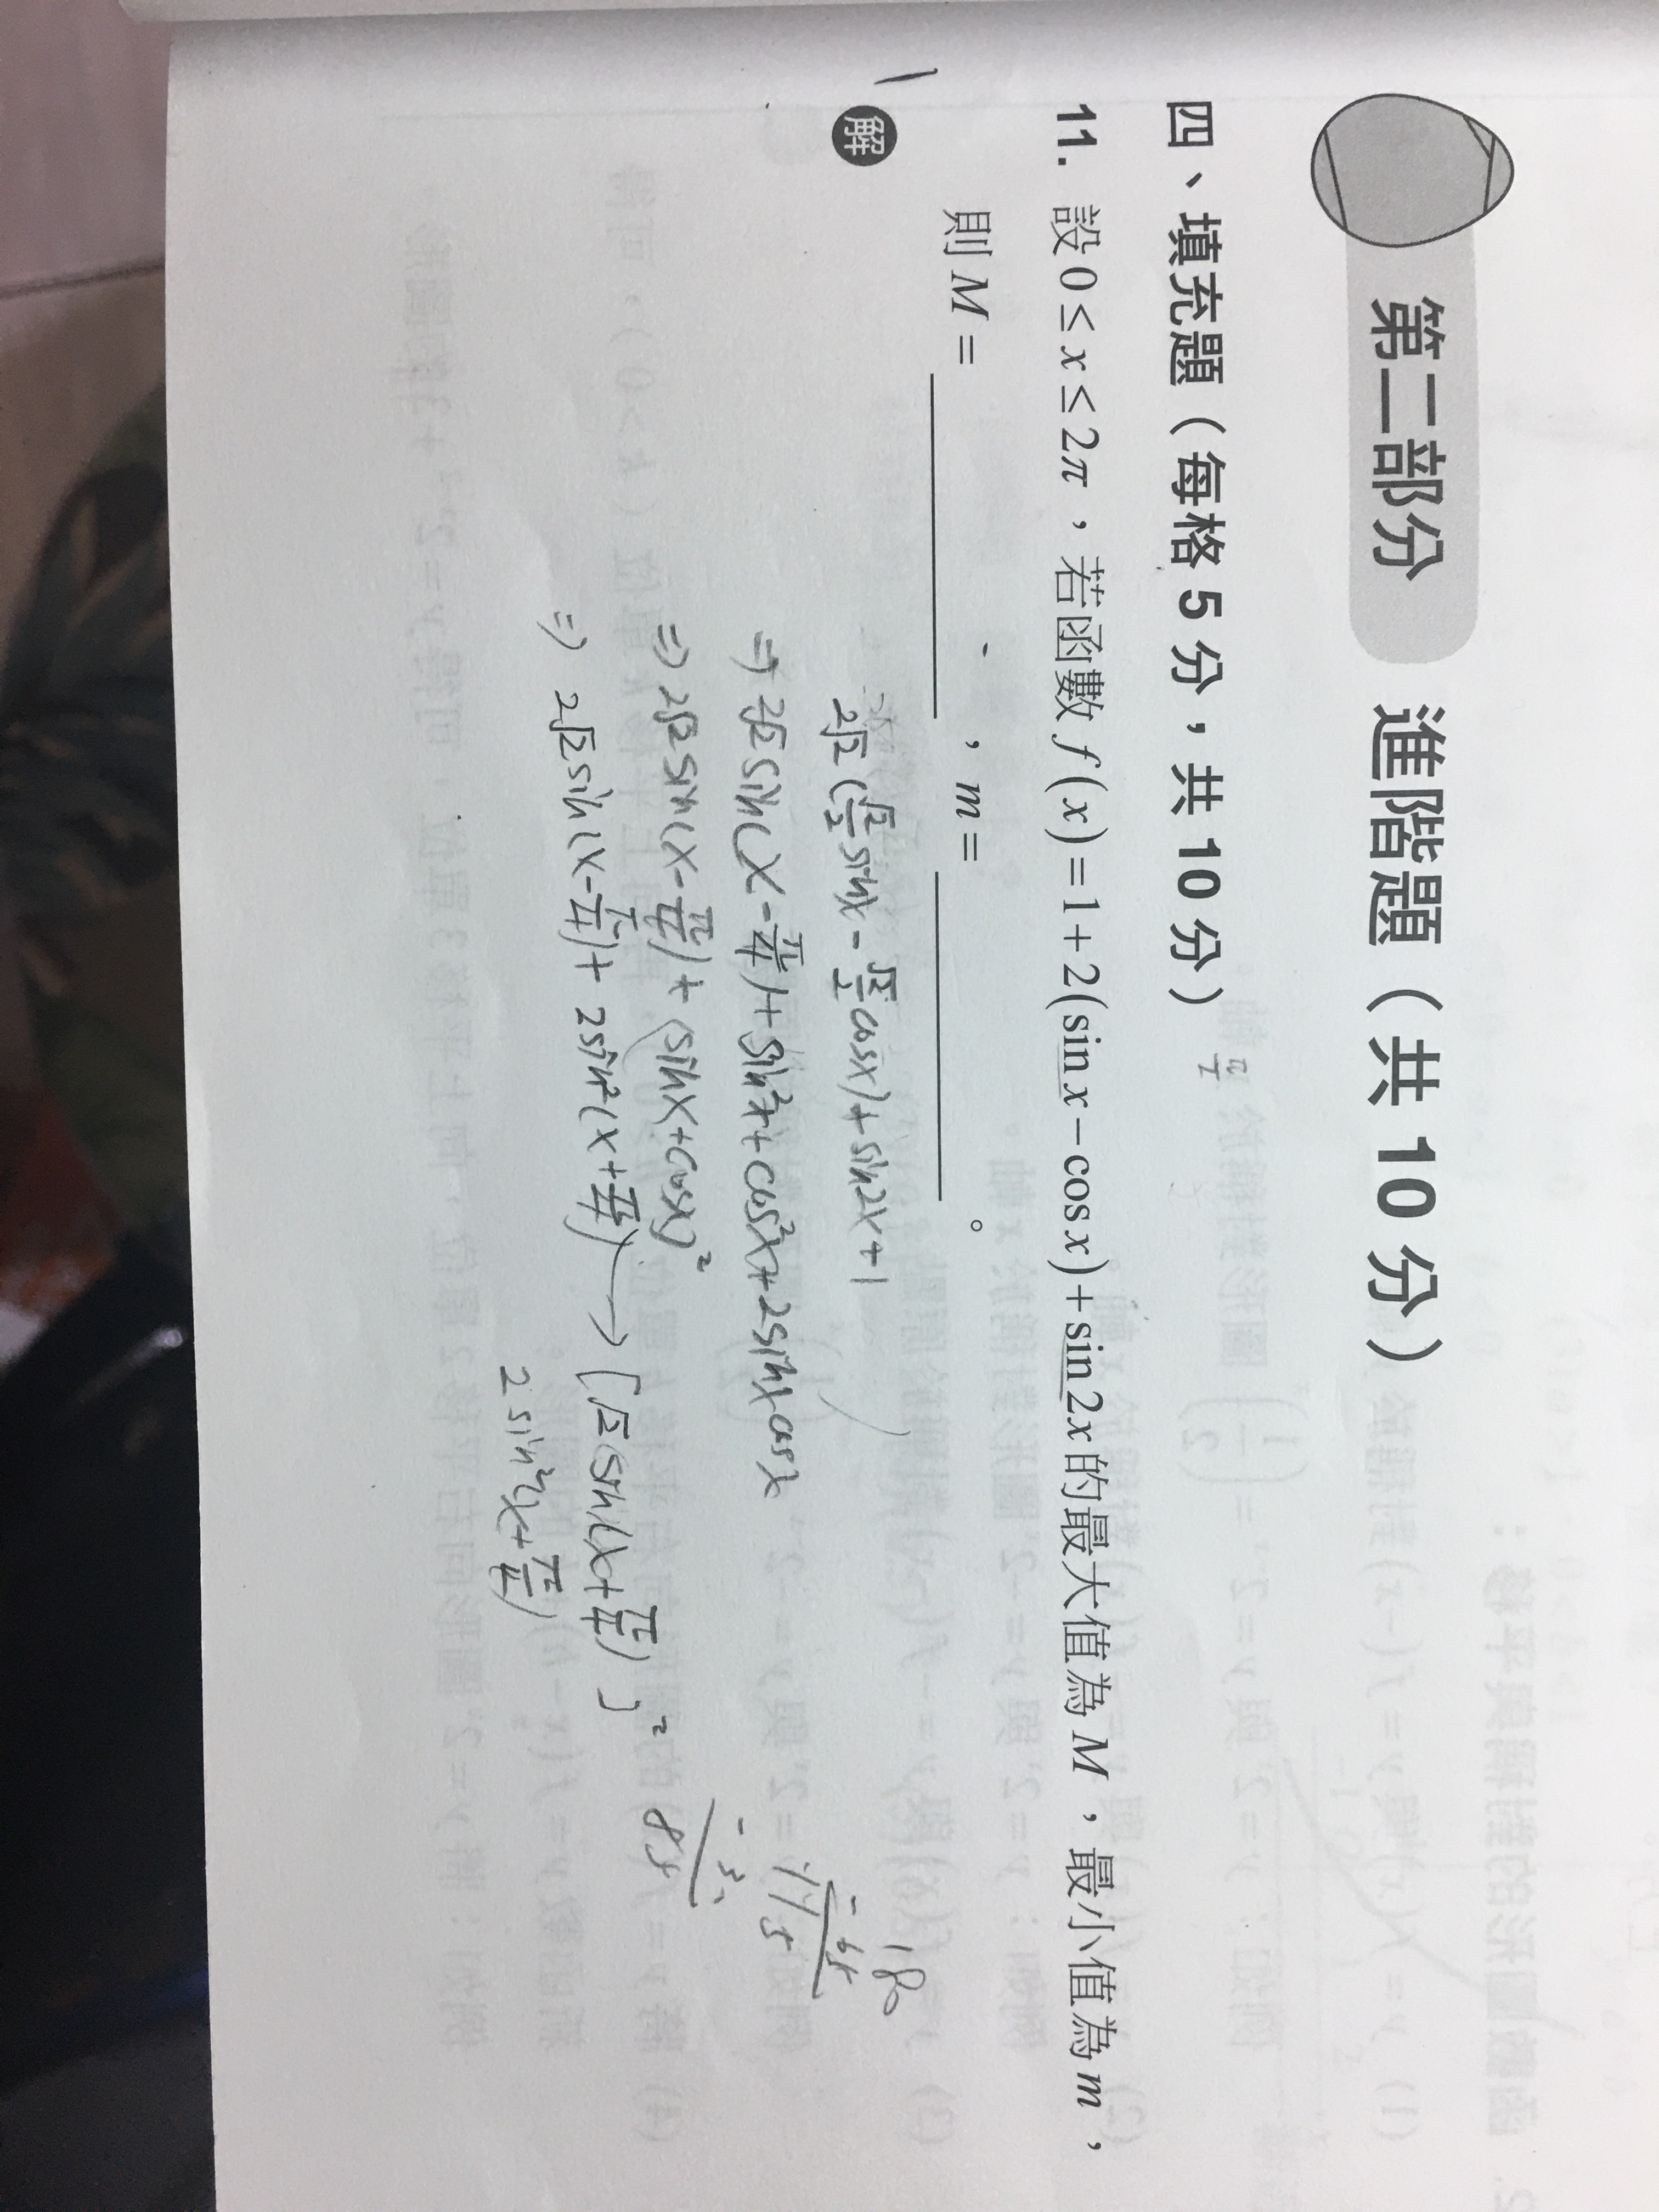 第二部分 進階題（共 10 分）
四、填充題（每格 5 分，共 10 分）
11. 設 0 ≤ x ≤ 2π，若函數 f(x)=1+2(sin x−cos x)+sin 2x 的最大值為 M，最小值為 m，
則 M = ，m = 。
解
2√2 (√2/2 sinx - √2/2 cosx) + sin2x + 1
⇒ 2√2 sin(x - π/4) + sin²x + cos²x + 2sinx cosx
⇒ 2√2 sin(x - π/4) + (sinx + cosx)²
⇒ 2√2 sin(x - π/4) + 2sin²(x + π/4) → [√2 sin(x + π/4)]²
2 sin²(x + π/4)
180